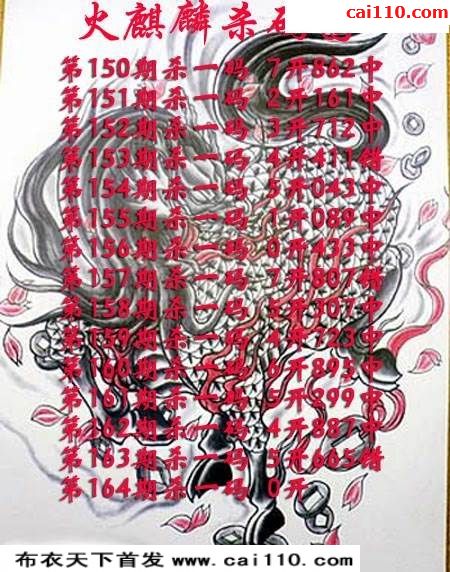 cai110.com
火麒麟杀码
第150期杀一码 7开862中
第151期杀一码 2开161中
第152期杀一码 3开712中
第153期杀一码 4开411错
第154期杀一码 5开043中
第155期杀一码 1开089中
第156期杀一码 0开433中
第157期杀一码 7开807错
第158期杀一码 5开707中
第159期杀一码 4开723中
第160期杀一码 6开895中
第161期杀一码 5开899中
第162期杀一码 4开887中
第163期杀一码 5开665错
第164期杀一码 0开
布衣天下首发 www.cai110.com